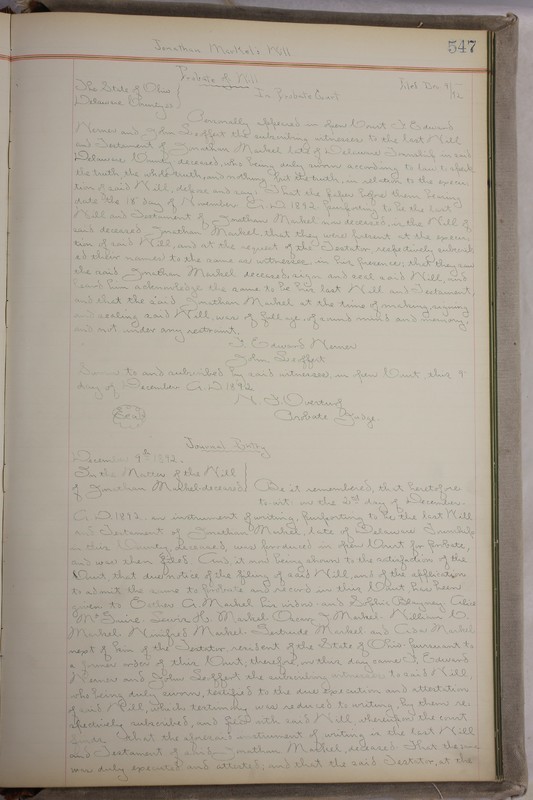 547
Jonathan Markel's Will
Probate of Will
The State of Ohio
Delaware County, ss
In Probate Court
Filed Dec 9/92
Personally appeared in open Court F. Edward
Werner and John Seeffert the subscribing witnesses to the last Will
and Testament of Jonathan Markel late of Delaware Township in said
Delaware County, deceased, who being duly sworn according to law to speak
the truth, the whole truth, and nothing but the truth, in relation to the execu-
tion of said Will, depose and say: That the paper before them bearing
date the 18" day of November A.D. 1892 purporting to be the last
Will and Testament of Jonathan Markel now deceased, is the Will of
said deceased, Jonathan Markel that they were present at the execu-
tion of said Will, and at the request of the Testator, respectively subscrib-
ed their names to the same as witnesses in his presence; that they saw
the said Jonathan Markel deceased, sign and seal said Will, and
heard him acknowledge the same to be his last Will and Testament,
and that the said Jonathan Markel at the time of making, signing
and sealing said Will, was of full age, of sound mind and memory,
and not under any restraint.
F. Edward Werner
John Seeffert
Sworn to and subscribed by said witnesses, in open Court, this 9"
day of December A.D. 1892
N. F. Overturf
Probate Judge
Seal
Journal Entry
December 9th 1892.
In the Matter of the Will
of Jonathan Markel deceased
Be it remembered, that heretofore
to wit: on the 2nd day of December
A.D. 1892 an instrument of writing, purporting to be the last Will
and Testament of Jonathan Markel, late of Delaware Township
in this County, deceased, was produced in open Court for probate,
and was then filed. And, it now being shown to the satisfaction of the
Court that due notice of the filing of said Will, and of the application
to admit the same to probate and record in this Court has been
given to Esther A. Markel his widow and Alice
McGuire, Lewis H. Markel Markel William
Markel Winifred Markel Gertrude Markel and Markel
next of kin of the Testator, resident of the State of Ohio pursuant to
a former order of this Court, therefore, on this day came F. Edward
Werner and John Seeffert the subscribing witnesses to said Will,
who being duly sworn, testified to the due execution and attestation
of said Will, which testimony was reduced to writing, by them re-
spectively subscribed, and filed with said Will, whereupon the court
finds, That the aforesaid instrument of writing is the last Will
and Testament of said Jonathan Markel, deceased. That the same
was duly executed and attested; and that the said Testator, at the